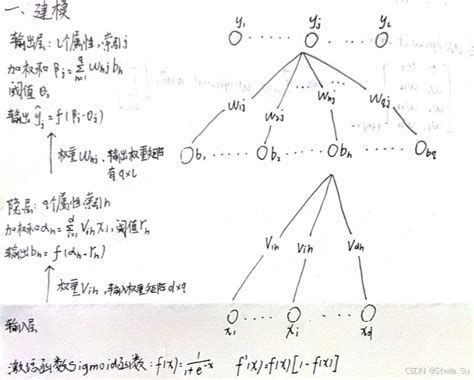 一、建模
输出层：l个属性，索引j
加权和 βj = Σ(h=1..q) Whj bh
阈值 θj
输出 ŷj = f(βj-θj)
权重Whj，输出权重矩阵
有 q×l
隐层：q个属性，索引h
加权和 αh = Σ(i=1..d) Vih xi，阈值 rh
输出 bh = f(αh-rh)
权重 Vih，输入权重矩阵 d×q
输入层
激活函数Sigmoid函数：f(x)=1/(1+e^-x) f'(x)=f(x)[1-f(x)]
y1 yj yl
W1j W2j Whj Wqj
b1 b2 bh bq
V1h Vih Vdh
x1 xi xd
CSDN @Stwie_Su